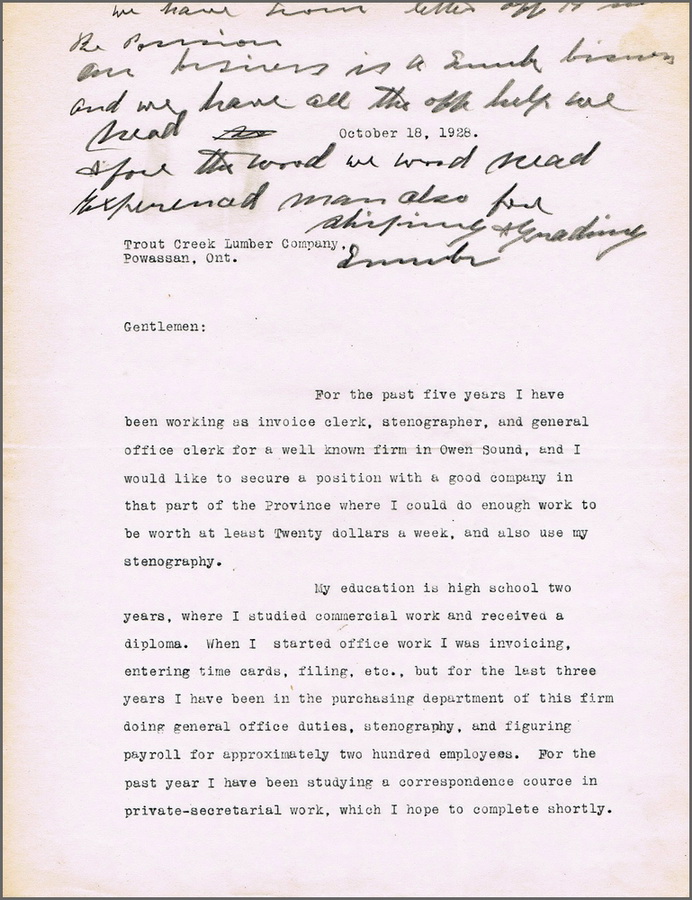 we have your letter off
Re Possision
our bisiness is a Lumbr bisness
and we have all the off help we
nead October 18, 1928.
& fore the wood we wood nead
Experenced man also for
shiping & Grading
Trout Creek Lumber Company,
Lumbr
Powassan, Ont.
Gentlemen:
For the past five years I have
been working as invoice clerk, stenographer, and general
office clerk for a well known firm in Owen Sound, and I
would like to secure a position with a good company in
that part of the Province where I could do enough work to
be worth at least Twenty dollars a week, and also use my
stenography.
My education is high school two
years, where I studied commercial work and received a
diploma. When I started office work I was invoicing,
entering time cards, filing, etc., but for the last three
years I have been in the purchasing department of this firm
doing general office duties, stenography, and figuring
payroll for approximately two hundred employees. For the
past year I have been studying a correspondence cource in
private-secretarial work, which I hope to complete shortly.